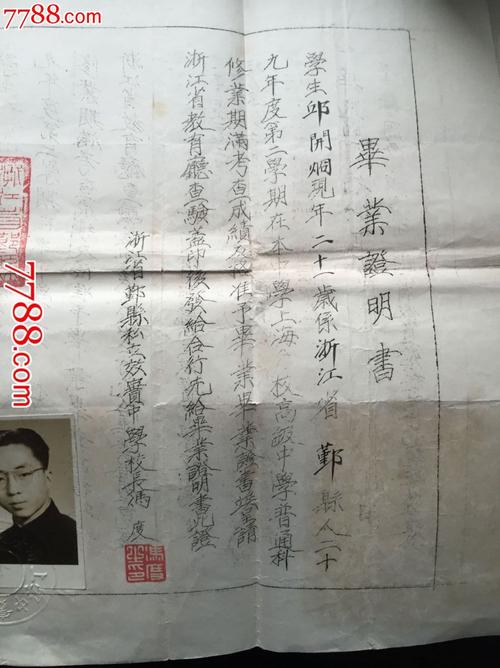 畢業證明書
學生邱開炯現年二十一歲係浙江省鄞縣人二十
九年度第二學期在本中學上海 校高級中學普通科
修業期滿考查成績及格准予畢業畢業證書俟呈請
浙江省教育廳查驗蓋印後發給合行先給畢業證明書此證
浙江省鄞縣私立效實中學校長馮度
7788.com
7788.com